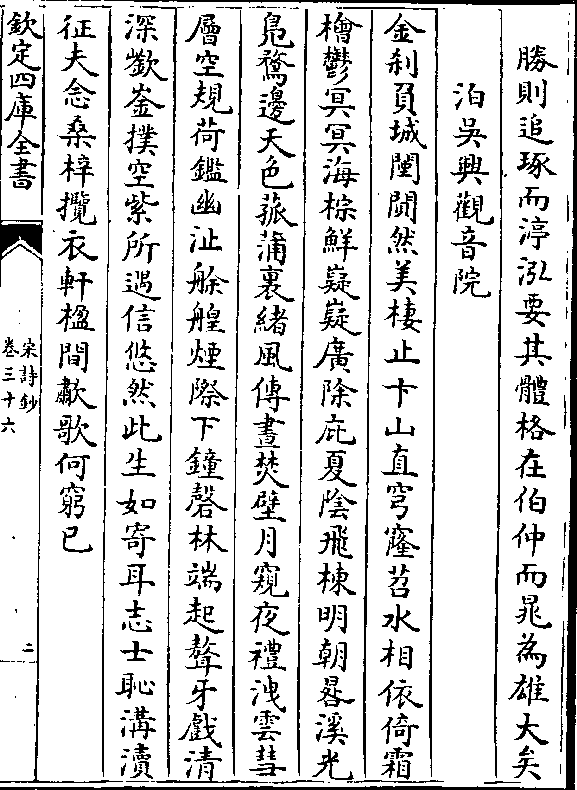 勝則追琢而渟泓要其體格在伯仲而晁為雄大矣
泊吳興觀音院
金刹負城闉閴然美棲止卞山直穹窿苕水相依倚霜
檜鬱冥冥海棕鮮嶷嶷廣除庇夏陰飛棟明朝晷溪光
鳬鶩邊天色菰蒲裏緒風傳晝焚壁月窺夜禮洩雲彗
層空規荷鑑幽沚艅艎煙際下鐘磬林端起聱牙戲清
深嶔崟撲空紫所遇信悠然此生如寄耳志士恥溝瀆
征夫念桑梓攬衣軒楹間歗歌何窮已
欽定四庫全書
宋詩鈔
卷三十六
二